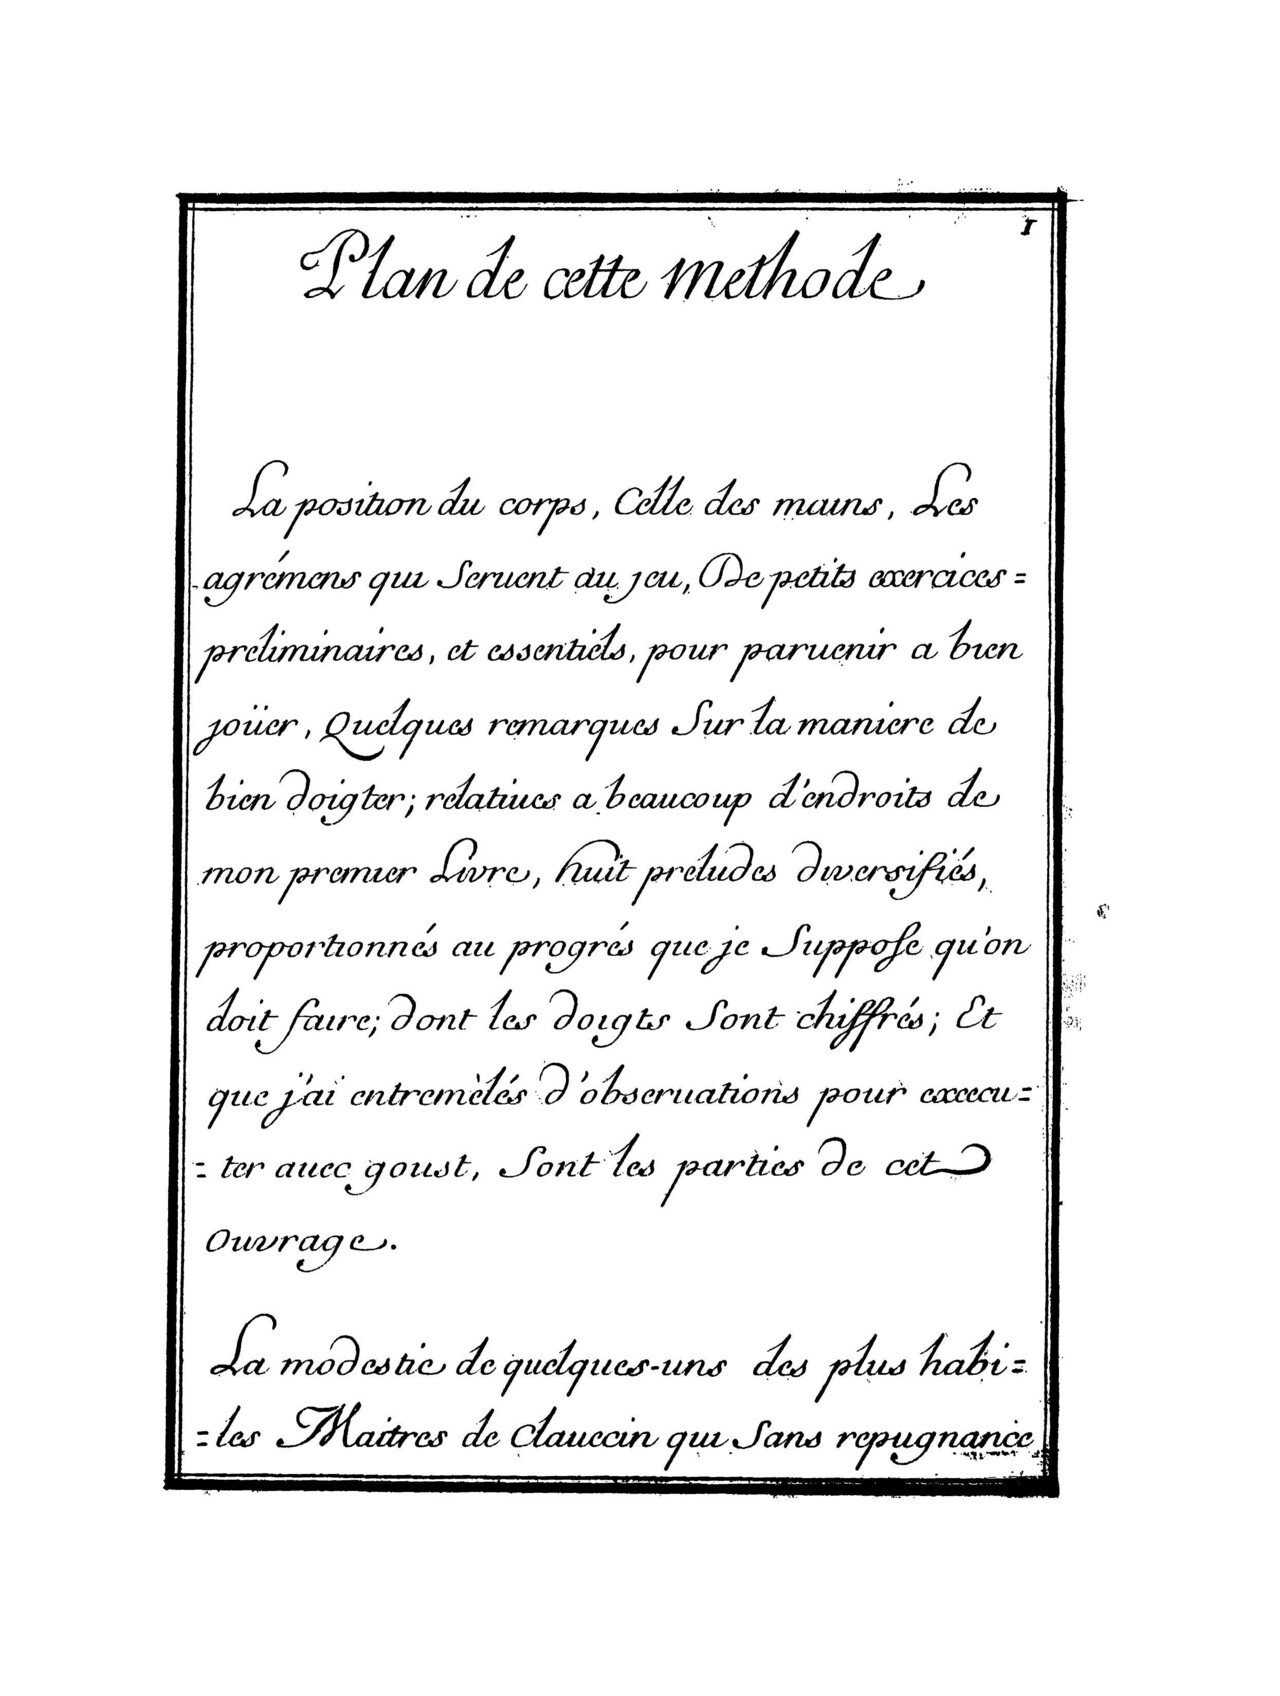 1
Plan de cette methode
La position du corps, Celle des mains, Les
agrémens qui Seruent au jeu, De petits exercices=
preliminaires, et essentiels, pour paruenir a bien
joüer, Quelques remarques Sur la maniere de
bien doigter; relatiues a beaucoup d'endroits de
mon premier Livre, huit preludes diversifiés,
proportionnés au progrés que je Suppose qu'on
doit faire; dont les doigts Sont chiffrés; Et
que j'ai entremèlés d'obseruations pour execcu=
=ter auec goust, Sont les parties de cet
Ouvrage.
La modestie de quelques-uns des plus habi=
=les Maitres de Clauecin qui Sans repugnance